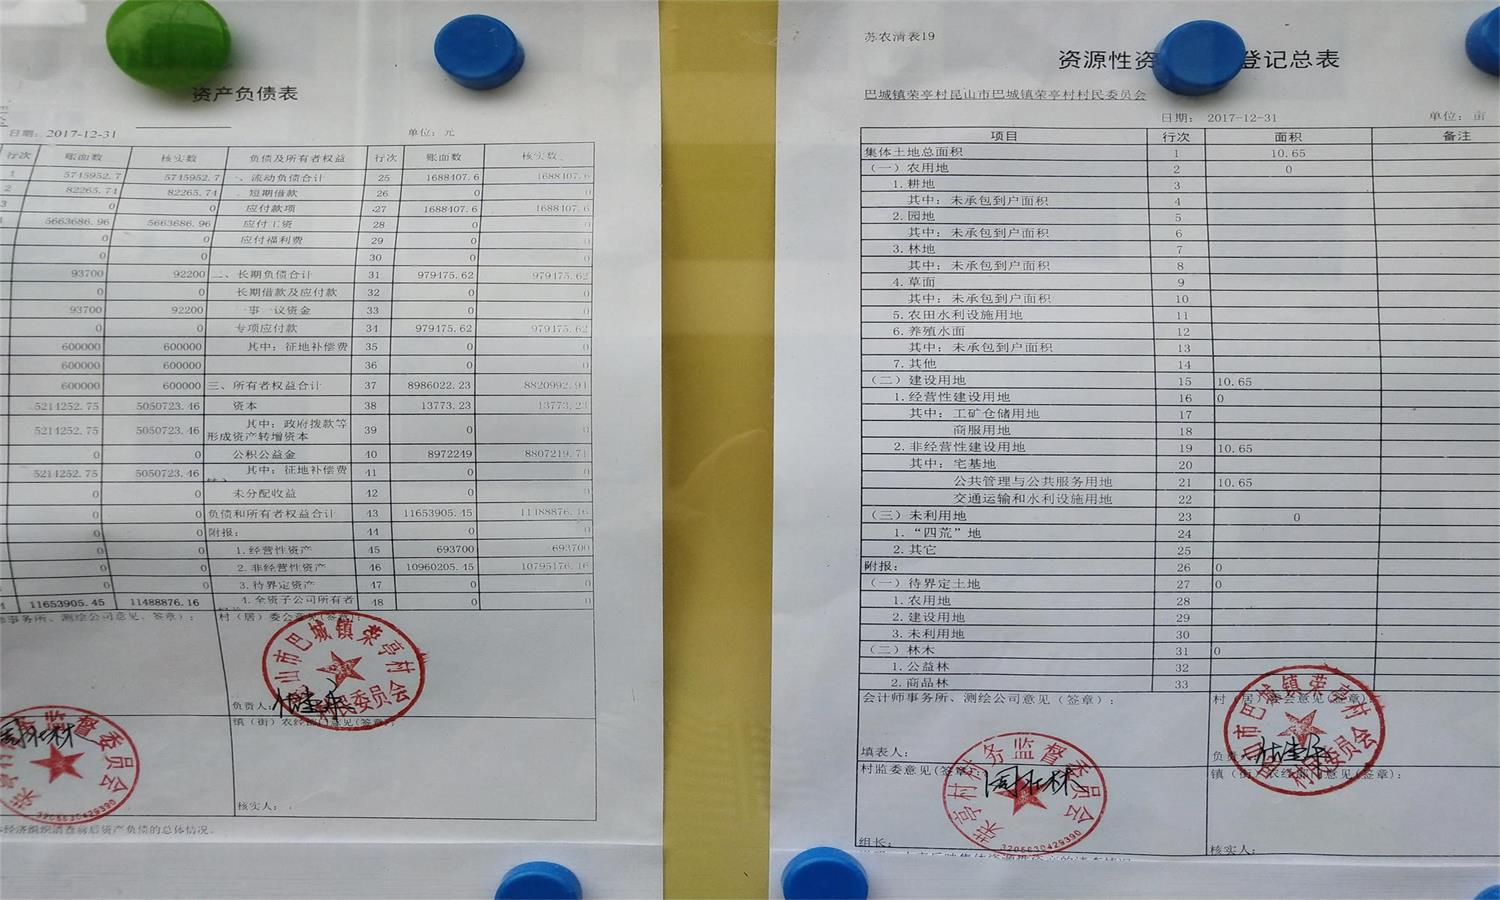 资产负债表
日期：2017-12-31 单位：元
行次 账面数 核实数 负债及所有者权益 行次 账面数 核实数
1 5745952.7 5745952.7 一、流动负债合计 25 1688407.6 1688407.6
2 82265.74 82265.74 短期借款 26 0 0
3 0 0 应付款项 27 1688407.6 1688407.6
5663686.96 5663686.96 应付工资 28 0 0
0 0 应付福利费 29 0 0
0 0 30 0 0
93700 92200 二、长期负债合计 31 979475.62 979475.62
0 0 长期借款及应付款 32 0 0
93700 92200 一事一议资金 33 0 0
0 0 专项应付款 34 979475.62 979475.62
600000 600000 其中：征地补偿费 35 0 0
600000 600000 36 0 0
600000 600000 三、所有者权益合计 37 8986022.23 8820992.94
5214252.75 5050723.46 资本 38 13773.23 13773.23
5214252.75 5050723.46 其中：政府拨款等形成资产转增资本 39 0 0
0 0 公积公益金 40 8972249 8807219.71
5214252.75 5050723.46 其中：征地补偿费 41 0 0
0 0 未分配收益 42 0 0
0 0 负债和所有者权益合计 43 11653905.45 11488876.16
0 0 附报： 44 0 0
0 0 1.经营性资产 45 693700 693700
0 0 2.非经营性资产 46 10960205.45 10795176.16
0 0 3.待界定资产 47 0 0
11653905.45 11488876.16 4.全资子公司所有者 48 0 0
事务所、测绘公司意见、签章）： 村（居）委会意见(签章)：
负责人：
镇（街）农经部门意见(签章)：
核实人：
经济组织清查前后资产负债的总体情况。
山市巴城镇荣亭村村民委员会
荣亭村村务监督委员会
3205830429390
苏农清表19
资源性资 登记总表
巴城镇荣亭村昆山市巴城镇荣亭村村民委员会
日期： 2017-12-31 单位：亩
项目 行次 面积 备注
集体土地总面积 1 10.65
（一）农用地 2 0
1.耕地 3
其中：未承包到户面积 4
2.园地 5
其中：未承包到户面积 6
3.林地 7
其中：未承包到户面积 8
4.草面 9
其中：未承包到户面积 10
5.农田水利设施用地 11
6.养殖水面 12
其中：未承包到户面积 13
7.其他 14
（二）建设用地 15 10.65
1.经营性建设用地 16 0
其中：工矿仓储用地 17
商服用地 18
2.非经营性建设用地 19 10.65
其中：宅基地 20
公共管理与公共服务用地 21 10.65
交通运输和水利设施用地 22
（三）未利用地 23 0
1.“四荒”地 24
2.其它 25
附报： 26 0
（一）待界定土地 27 0
1.农用地 28
2.建设用地 29
3.未利用地 30
（二）林木 31 0
1.公益林 32
2.商品林 33
会计师事务所、测绘公司意见（签章）： 村（居）委会意见(签章)
填表人： 负责
村监委意见(签章)： 镇（街）农经部门意见(签章)：
组长： 核实人：
荣亭村村务监督委员会
3205830429390
山市巴城镇荣亭村村民委员会